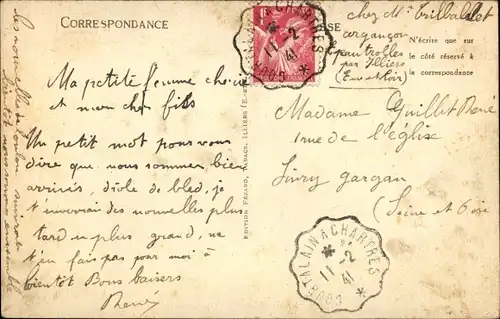 CORRESPONDANCE
chez Mr Trilballet
argançon
par trolles
par Illiers
(Eure et loir)
N'écrire que sur
le côté réservé à
la correspondance
COURTALAIN A CHARTRES
11 -2
41
Ma petite femme cherie
et mon cher fils
Un petit mot pour vous
dire que nous sommes bien
arrivés, drôle de bled, je
t'enverrai des nouvelles plus
tard un plus grand, ne
t'en fais pas pour moi à
bientôt Bons baisers
René
EDITION FEZARD, TABACS, ILLIERS
Madame Guillet René
1 rue de l'église
Livry gargan
(Seine et Oise
COURTALAIN A CHARTRES
11 -2
41